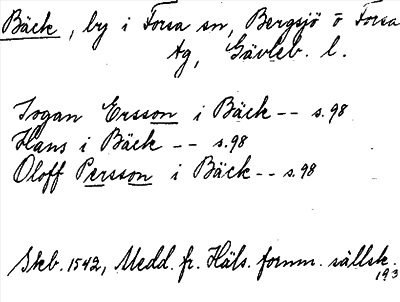 Bäck, by i Forsa sn, Bergsjö o Forsa
tg, Gävleb. l.
Jogan Ersson i Bäck -- s.98
Hans i Bäck -- s.98
Oloff Persson i Bäck -- s.98
Skb. 1542, Medd. fr. Häls. fornm. sällsk.
193